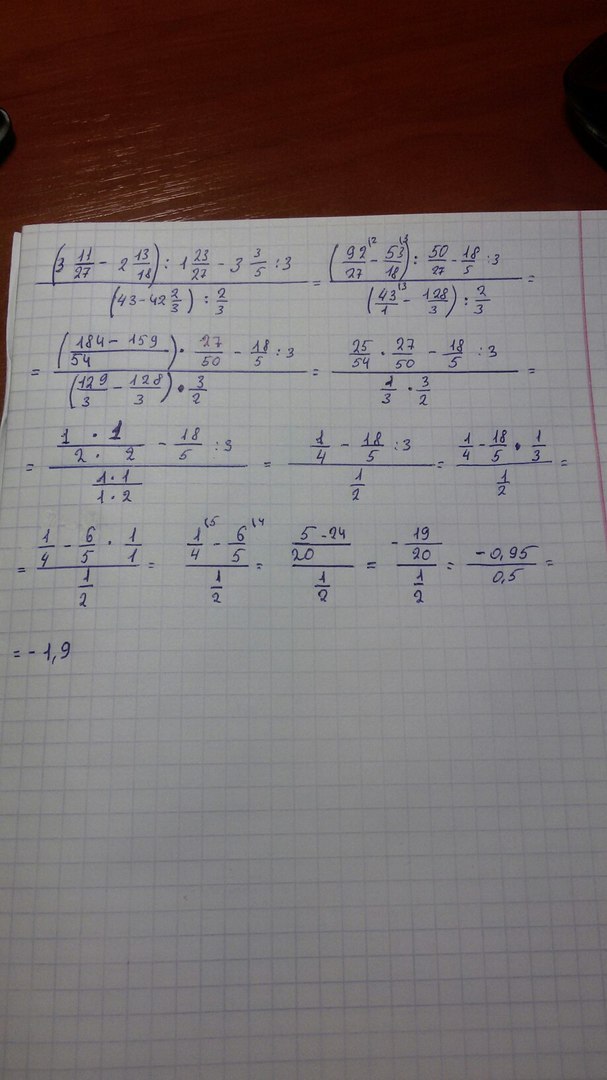 ((3 11/27 - 2 13/18) : 1 23/27 - 3 3/5 : 3) / ((43 - 42 2/3) : 2/3) = ((92/27 \2 - 53/18 \3) : 50/27 - 18/5 : 3) / ((43/1 \3 - 128/3) : 2/3) =
= (((184 - 159)/54) · 27/50 - 18/5 : 3) / ((129/3 - 128/3) · 3/2) = (25/54 · 27/50 - 18/5 : 3) / (1/3 · 3/2) =
= ((1 · 1)/(2 · 2) - 18/5 : 3) / ((1 · 1)/(1 · 2)) = (1/4 - 18/5 : 3) / (1/2) = (1/4 - 18/5 · 1/3) / (1/2) =
= (1/4 - 6/5 · 1/1) / (1/2) = (1/4 \5 - 6/5 \4) / (1/2) = ((5 - 24)/20) / (1/2) = (-19/20) / (1/2) = (-0,95)/(0,5) =
= -1,9